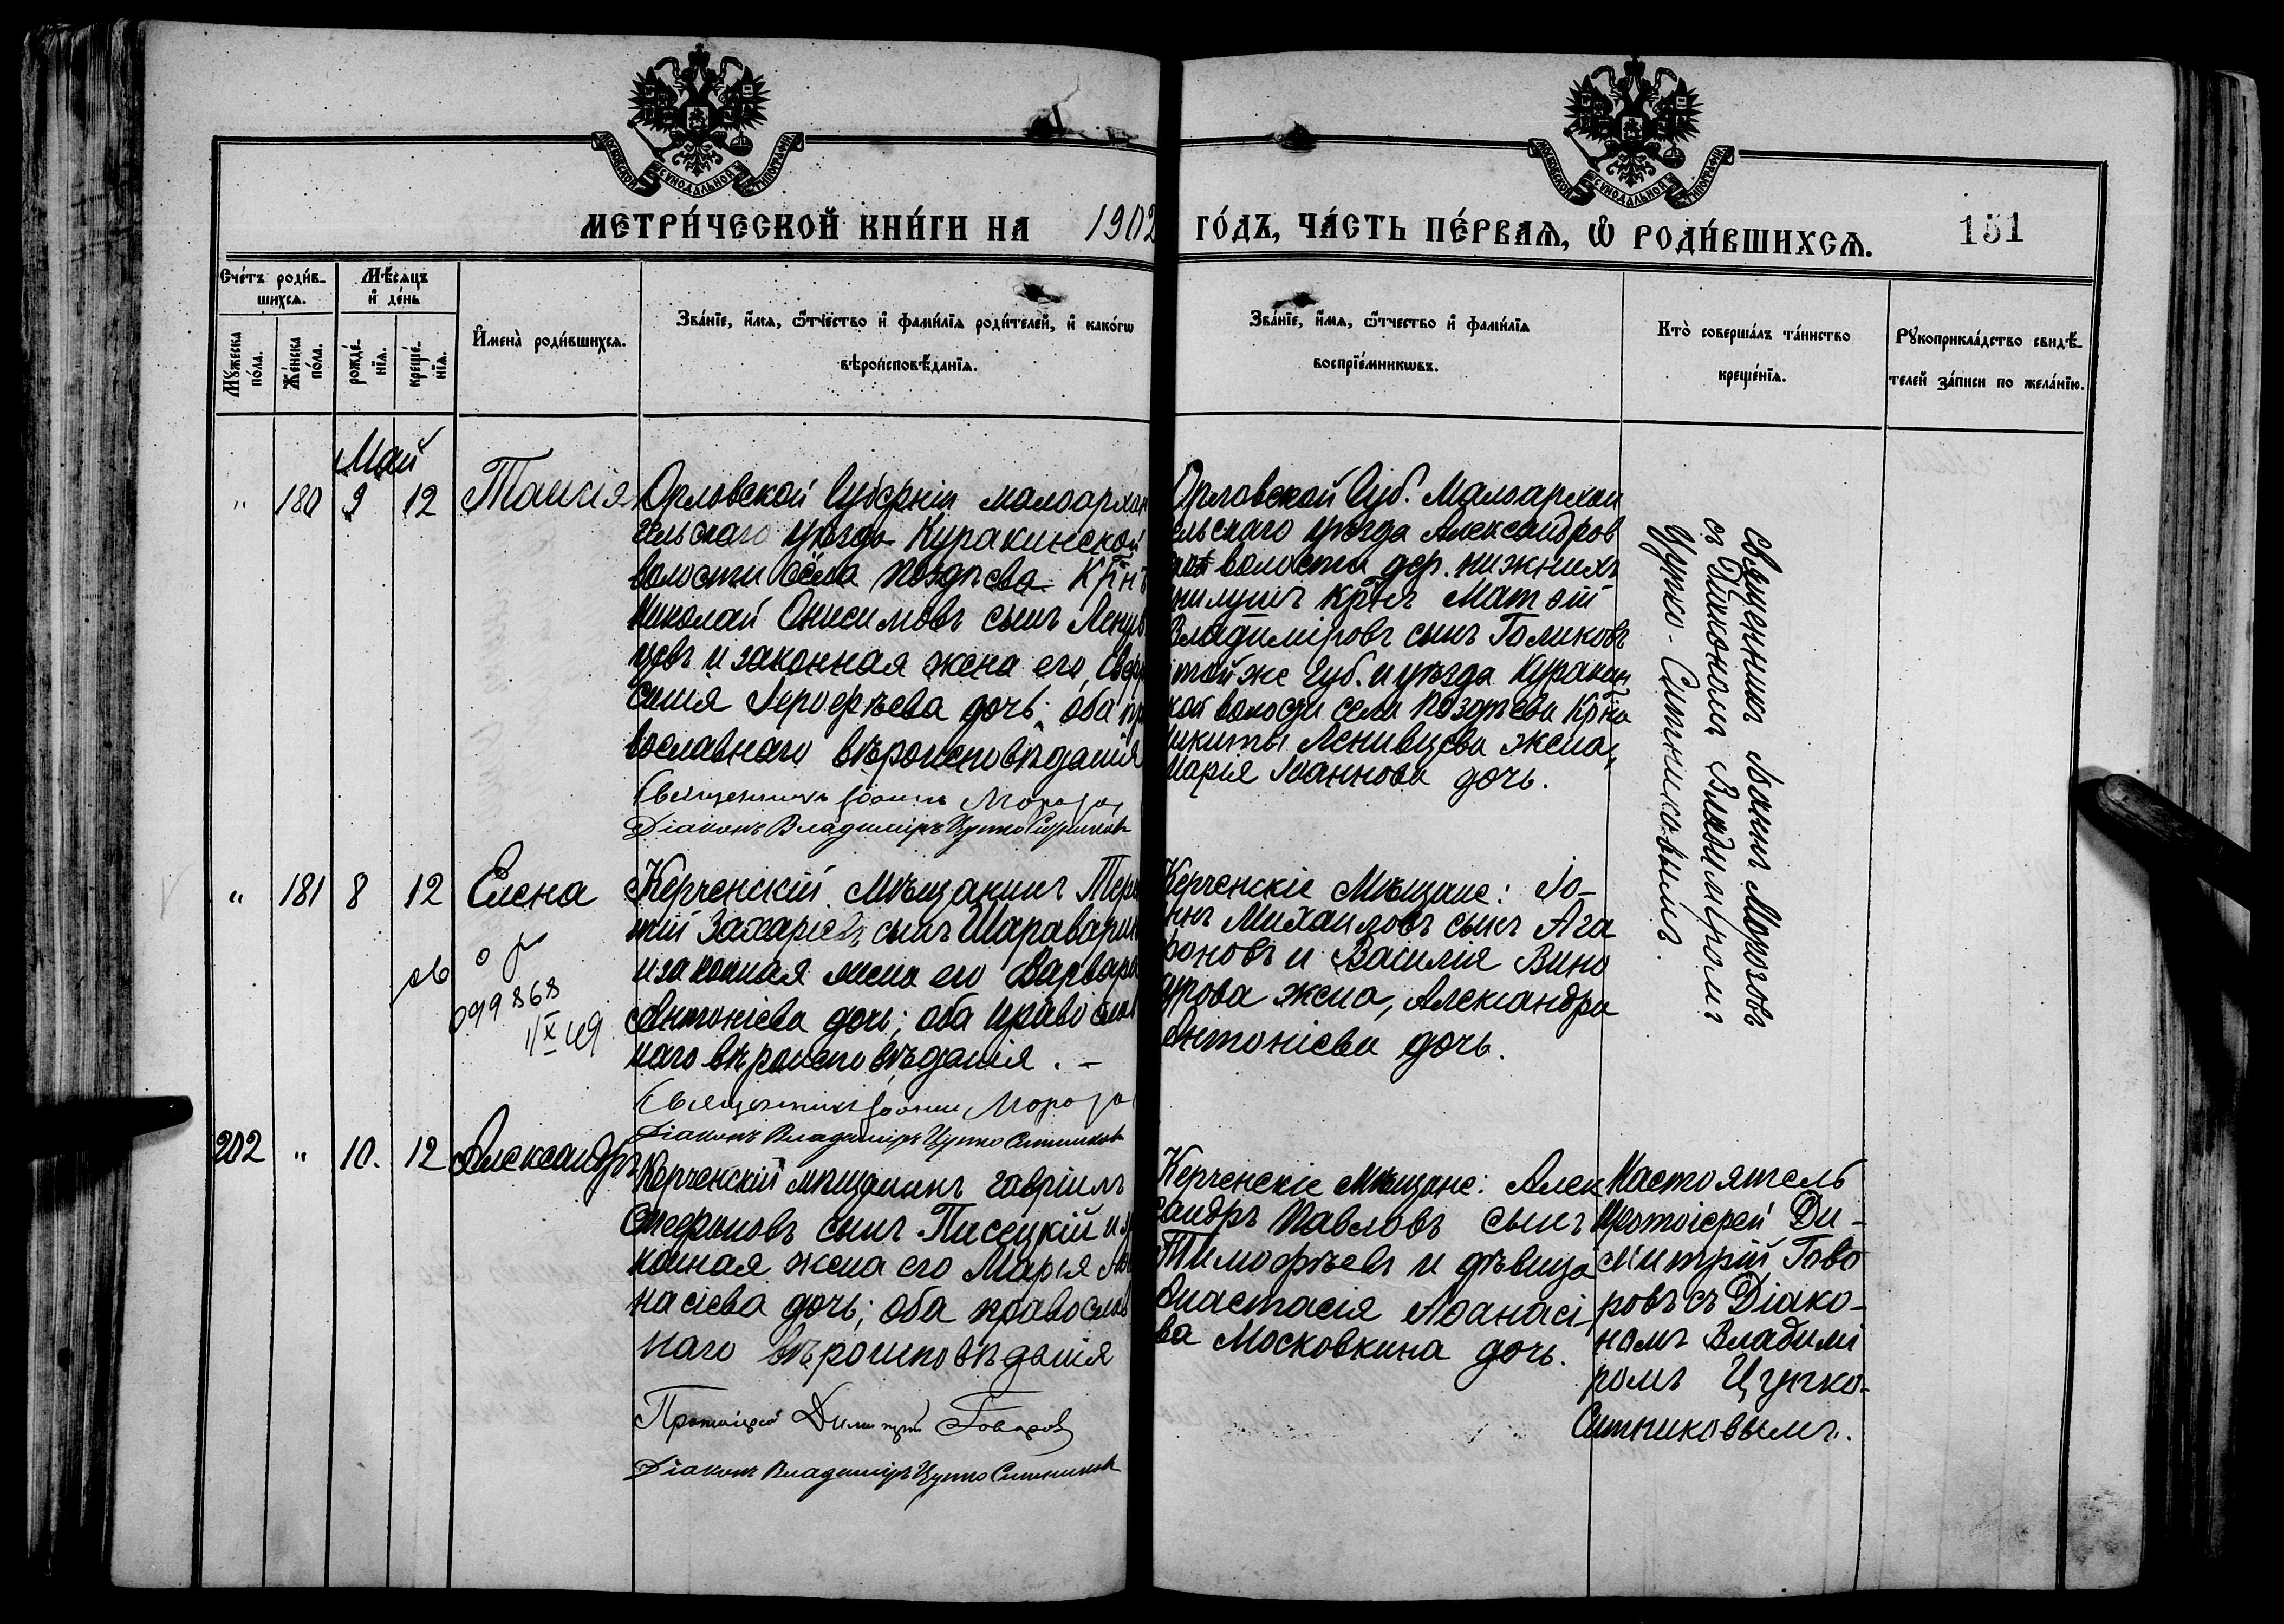 МОСКОВСКОЙ СѴНОДАЛЬНОЙ ТИПОГРАФІИ
МОСКОВСКОЙ СѴНОДАЛЬНОЙ ТИПОГРАФІИ
МЕТРИ́ЧЕСКОЙ КНИ́ГИ НА 1902
ГО́ДЪ, ЧА́СТЬ ПЕ́РВАѦ, Ѡ РОДИ́ВШИХСѦ.
151
Сче́тъ роди́в-
шихсѧ.
Мѣ́сѧцъ
и҆ де́нь
Мꙋ́жеска
по́ла.
Же́нска
по́ла.
рожде́-
нїѧ.
креще́-
нїѧ.
И҆мена̀ роди́вшихсѧ.
Зва́нїе, и҆́мѧ, ѻ҆́тчество и҆ фами́лїѧ роди́телей, и҆ како́гѡ
вѣроисповѣ́данїѧ.
Зва́нїе, и҆́мѧ, ѻ҆́тчество и҆ фами́лїѧ
воспрїе́мникѡвъ.
Кто̀ соверша́лъ та́инство
креще́нїѧ.
Рꙋкоприкла́дство свидѣ́-
телей за́писи по жела́нїю.
Май
" 180 9 12 Таисія
Орловской Губерніи малоархан
гельскаго уѣзда Куракинской
волости села Поздѣева Крнъ
Николай Онисимовъ сынъ Ленив
цевъ и законная жена его,
Ѳерофѣева дочь; оба пра
вославнаго вѣроисповѣданія
Священникъ Іоаннъ Морозо
Діаконъ Владиміръ Цупко Ситников
Орловской Губ. Малоархан
ельскаго уѣзда Александров
ской волости дер. нижнихъ
Крнъ Матѳій
Владиміровъ сынъ Голиковъ
той же Губ. и уѣзда Куракин
кой волости села Поздѣева Крна
икиты Ленивцева жена,
Марія Іоаннова дочь.
Священникъ Іоаннъ Морозовъ
съ Діакономъ Владиміромъ
Цупко-Ситниковымъ.
" 181 8 12 Елена
099868
1/X 49
Керченскій Мѣщанинъ
тій Захаріевъ сынъ Шараварин
и законная жена его Варвара
Антоніева дочь; оба православ
наго вѣроисповѣданія. -
Священникъ Іоаннъ Морозо
Діаконъ Владиміръ Цупко Ситников
Керченскіе Мѣщане: Іо-
ннъ Михаиловъ сынъ Ага
фоновъ и Василія Вино
урова жена, Александра
Антоніева дочь.
202 " 10. 12 Александръ
Керченскій мѣщанинъ Гавріилъ
Стефановъ сынъ Писецкій и за
конная жена его Марія Аѳа
насіева дочь; оба православ
наго вѣроисповѣданія
Протоіерей Димитрій Говоров
Діаконъ Владиміръ Цупко Ситников
Керченскіе Мѣщане: Алек
сандръ Павловъ сынъ
Тимофѣевъ и дѣвица
Анастасія Аѳанасі
ва Московкина дочь.
Настоятель
Протоіерей Ди-
митрій Гово
ровъ съ Діако-
номъ Владимі
ромъ Цупко-
Ситниковымъ.